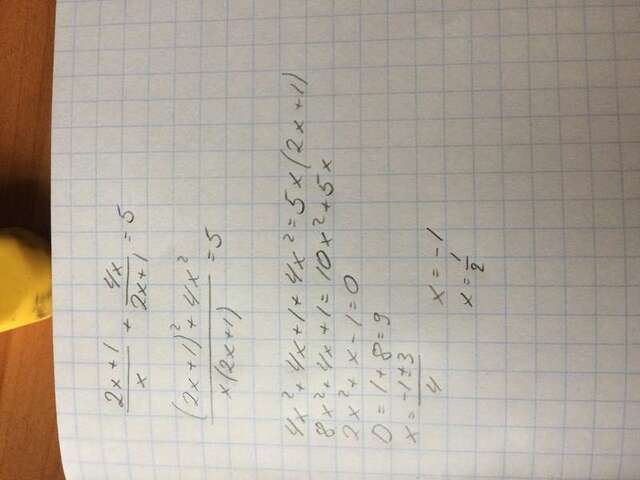 (2x+1)/x + 4x/(2x+1) = 5
((2x+1)² + 4x²)/(x(2x+1)) = 5
4x² + 4x + 1 + 4x² = 5x(2x+1)
8x² + 4x + 1 = 10x² + 5x
2x² + x - 1 = 0
D = 1 + 8 = 9
x = (-1 ± 3)/4
x = -1
x = 1/2